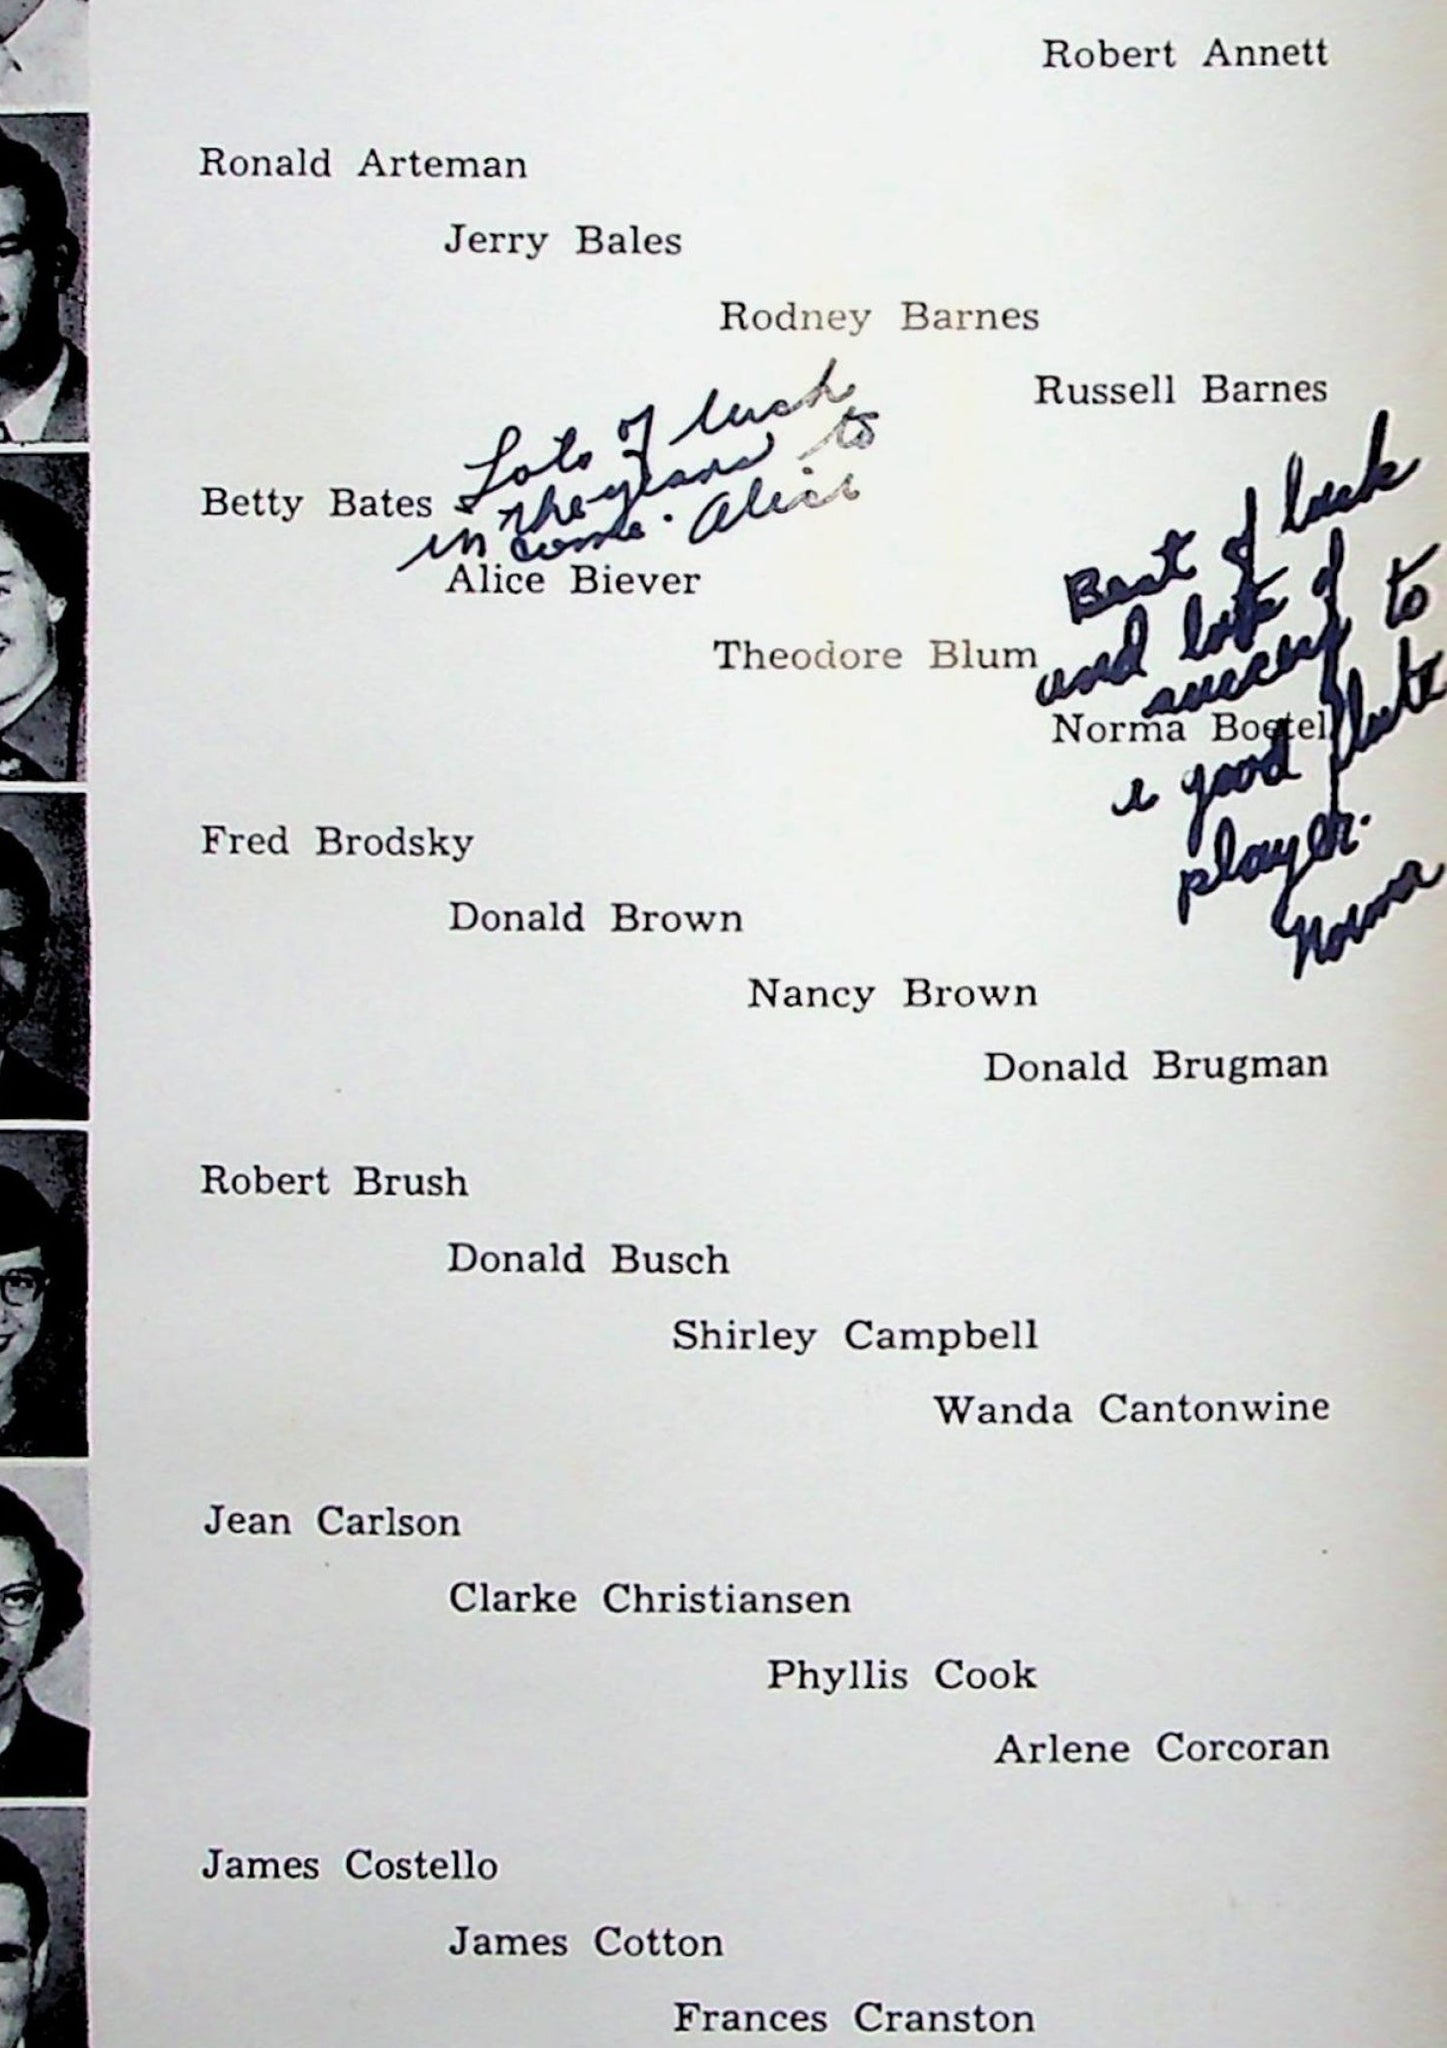 Robert Annett
Ronald Arteman
Jerry Bales
Rodney Barnes
Russell Barnes
Betty Bates
Lots of luck
in the years to
come. Alice
Alice Biever
Theodore Blum
Best of luck
and lots of
success to
Norma Boetel
a good flute
player.
Norma
Fred Brodsky
Donald Brown
Nancy Brown
Donald Brugman
Robert Brush
Donald Busch
Shirley Campbell
Wanda Cantonwine
Jean Carlson
Clarke Christiansen
Phyllis Cook
Arlene Corcoran
James Costello
James Cotton
Frances Cranston